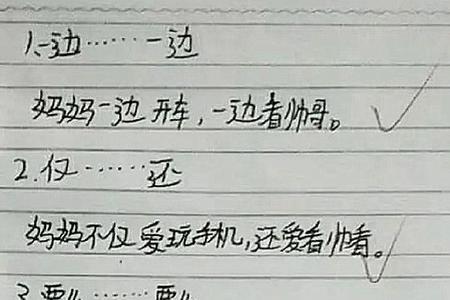 1、一边……一边
妈妈一边开车，一边看帅哥。
2.仅……还
妈妈不仅爱玩手机,还爱看帅看。